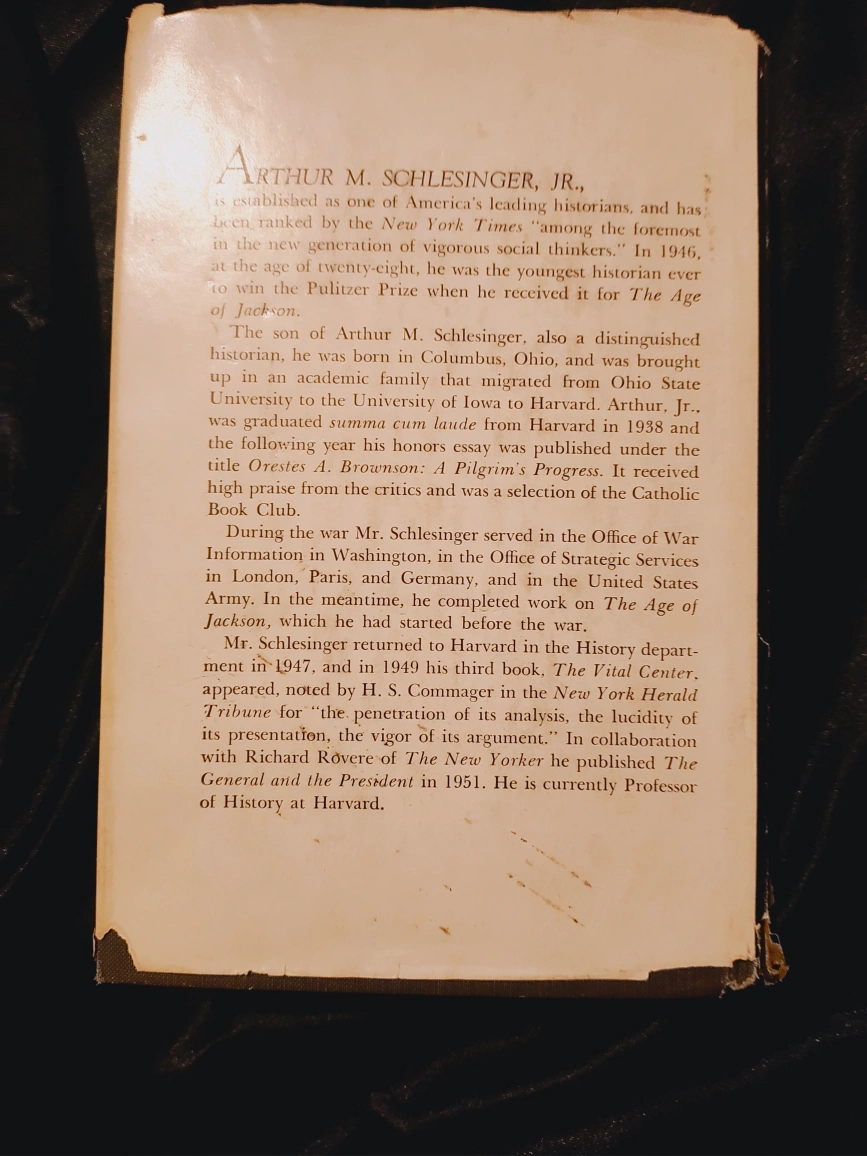 ARTHUR M. SCHLESINGER, JR.,
is established as one of America's leading historians, and has
been ranked by the New York Times "among the foremost
in the new generation of vigorous social thinkers." In 1946,
at the age of twenty-eight, he was the youngest historian ever
to win the Pulitzer Prize when he received it for The Age
of Jackson.
The son of Arthur M. Schlesinger, also a distinguished
historian, he was born in Columbus, Ohio, and was brought
up in an academic family that migrated from Ohio State
University to the University of Iowa to Harvard. Arthur, Jr.,
was graduated summa cum laude from Harvard in 1938 and
the following year his honors essay was published under the
title Orestes A. Brownson: A Pilgrim's Progress. It received
high praise from the critics and was a selection of the Catholic
Book Club.
During the war Mr. Schlesinger served in the Office of War
Information in Washington, in the Office of Strategic Services
in London, Paris, and Germany, and in the United States
Army. In the meantime, he completed work on The Age of
Jackson, which he had started before the war.
Mr. Schlesinger returned to Harvard in the History depart-
ment in 1947, and in 1949 his third book, The Vital Center,
appeared, noted by H. S. Commager in the New York Herald
Tribune for "the penetration of its analysis, the lucidity of
its presentation, the vigor of its argument." In collaboration
with Richard Rovere of The New Yorker he published The
General and the President in 1951. He is currently Professor
of History at Harvard.